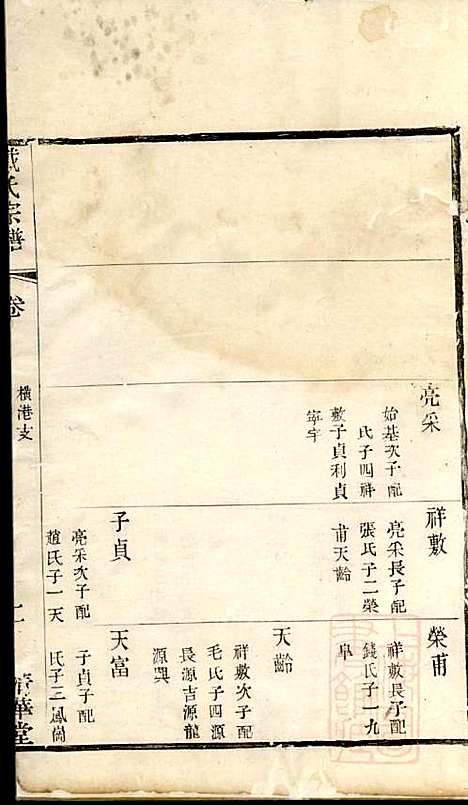 亮采
始基次子配
氏子四祥
敷子貞利貞
寧宇
祥敷
亮采長子配
張氏子二榮
甫天齡
子貞
亮采次子配
趙氏子一天
榮甫
祥敷長子配
錢氏子一九
阜
天齡
祥敷次子配
毛氏子四源
長源吉源龍
源興
天富
子貞子配
氏子三鳳
氏宗譜
卷
橫港支
華堂